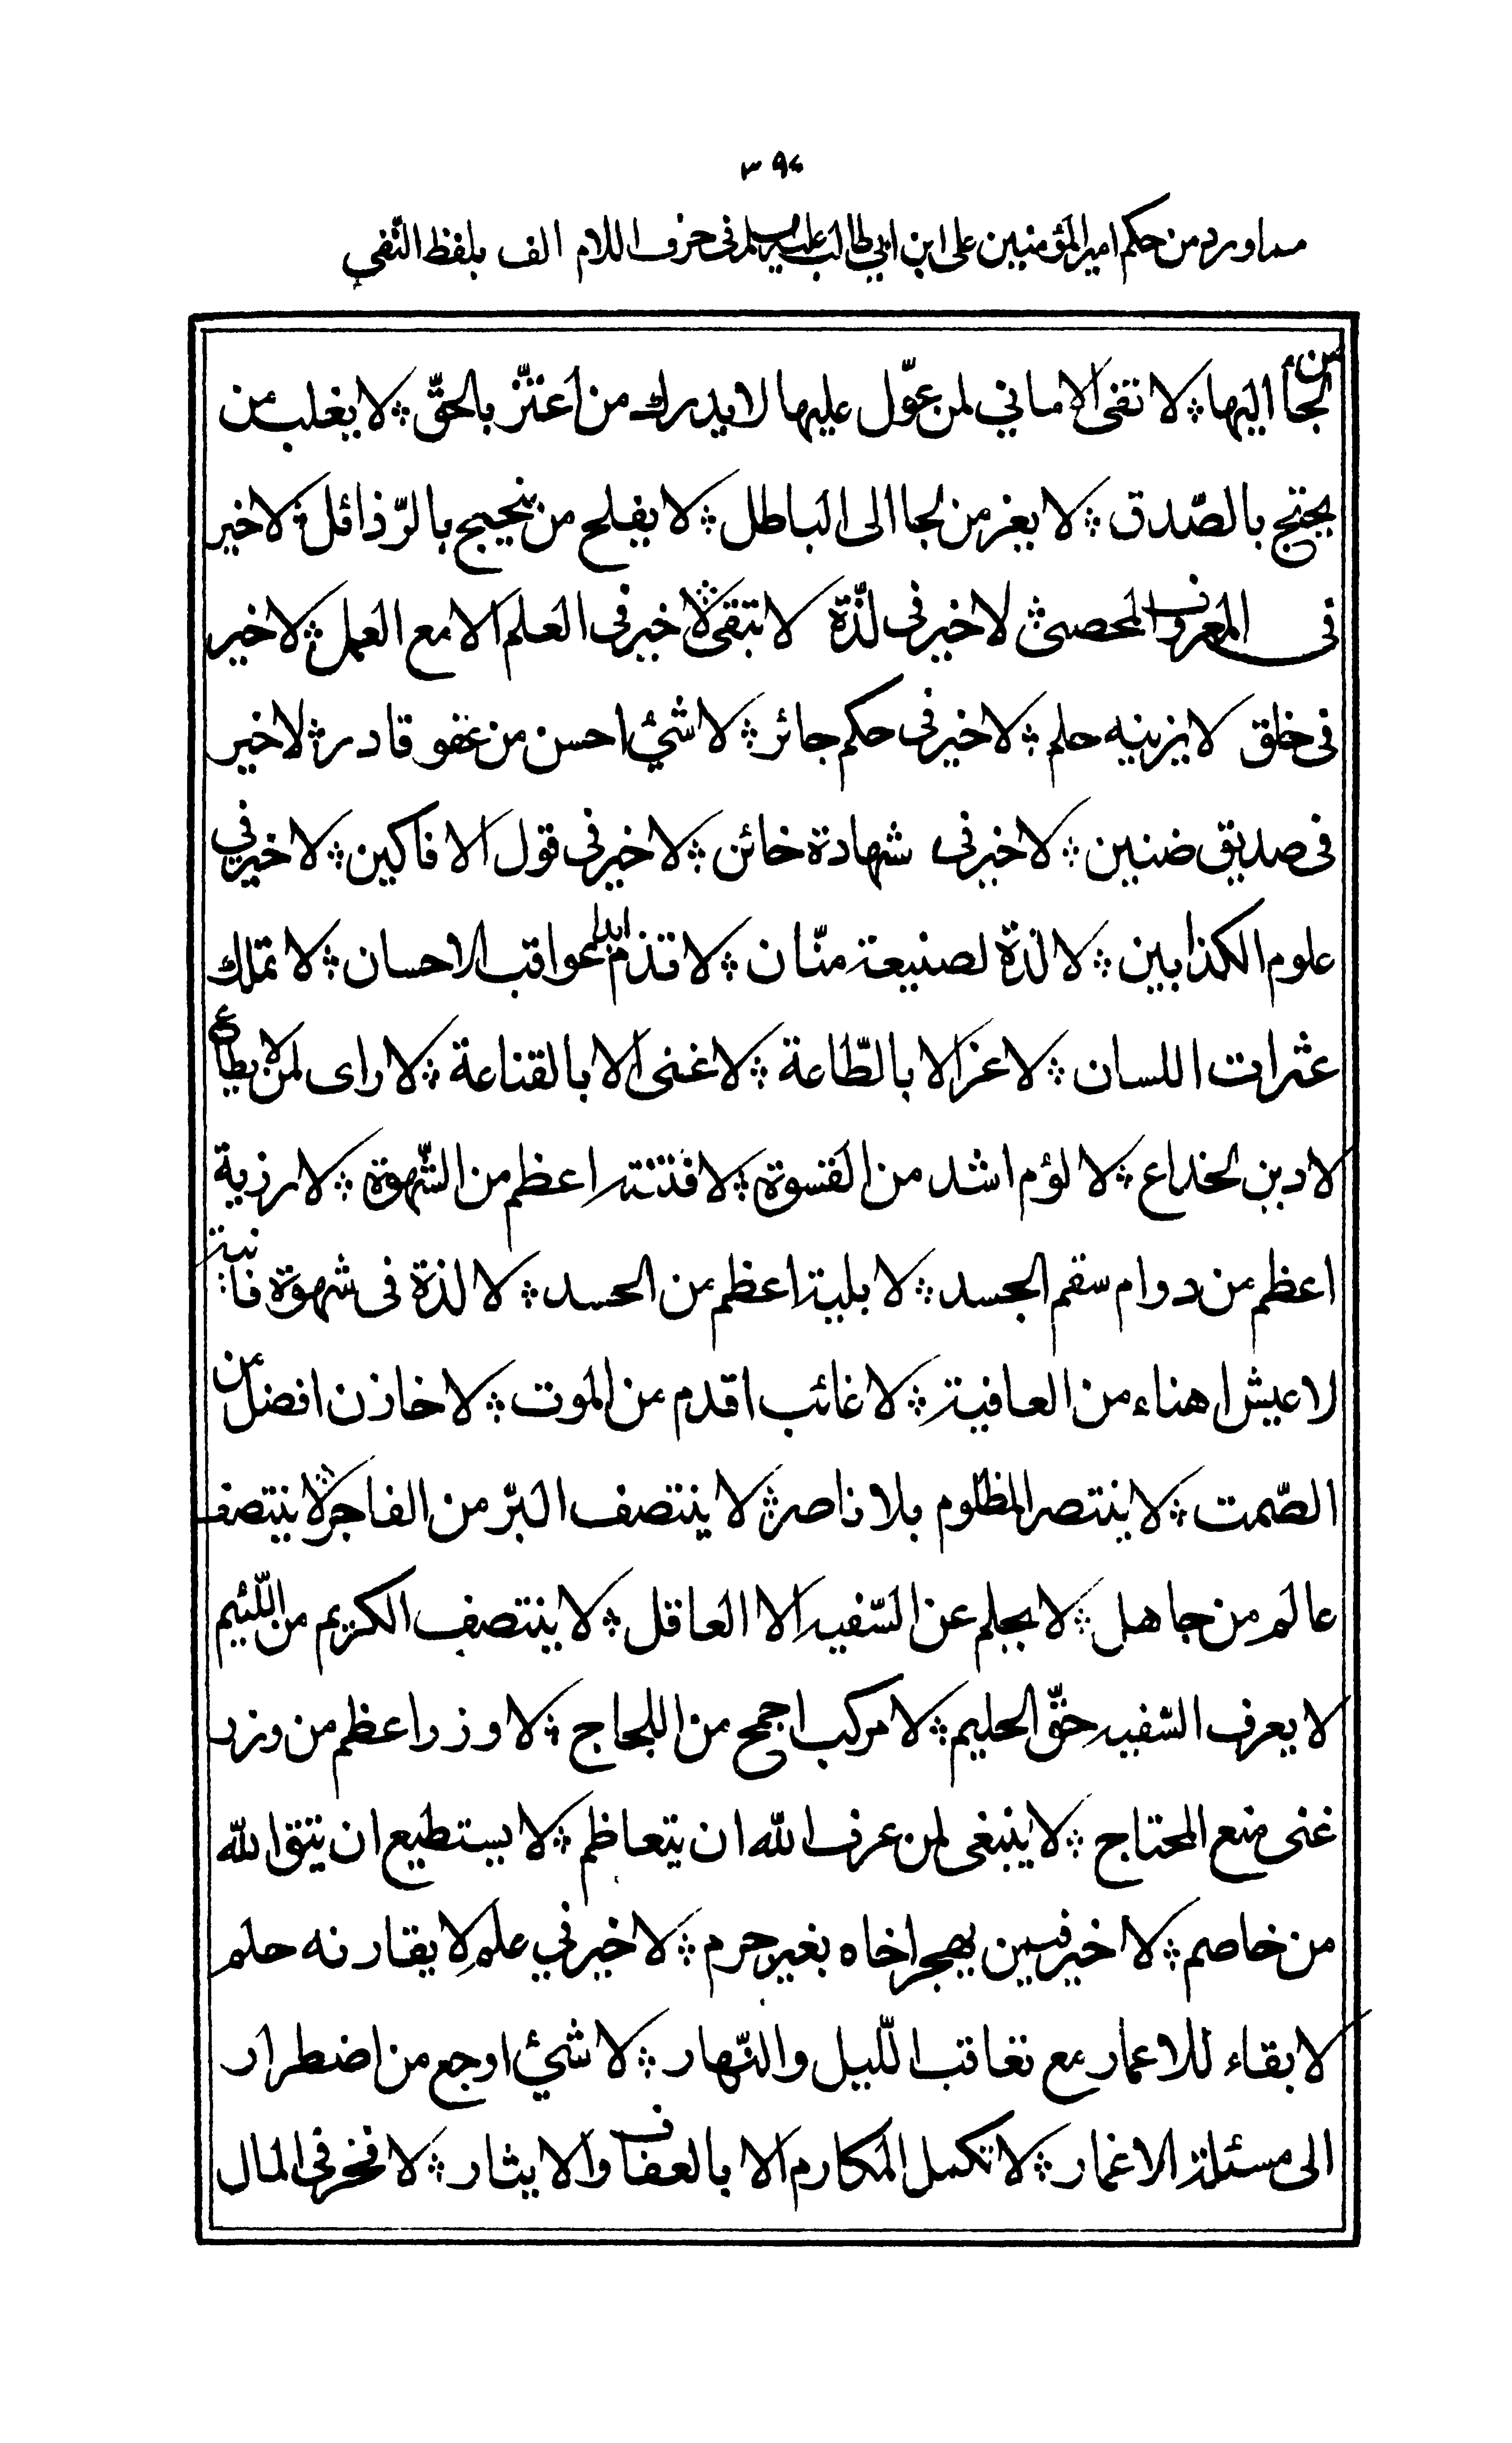 ٣٩٤
مما ورد من حكم امير المؤمنين على ابن ابي طالب عليه السلام فى حرف اللام الف بلفظ النّفي
من لجأ اليها ؞ لا تفى الامانى لمن عوّل عليها لا يدرك من اعتزّ بالحقّ ؞ لا يغلب من
يحتج بالصّدق ؞ لا يعز من لجا الى الباطل ؞ لا يفلح من يتبجح بالرّذائل ؞ لا خير
فى المعروف المحصى ؞ لا خير فى لذّة لا تبقى ؞ لا خير فى العلم الا مع العمل ؞ لا خير
فى خلق لا يزينه حلم ؞ لا خير فى حكم جائر ؞ لا شئ احسن من عفو قادر ؞ لا خير
فى صديق ضنين ؞ لا خير فى شهادة خائن ؞ لا خير فى قول الافاكين ؞ لا خير في
علوم الكذابين ؞ لا لذة لصنيعة منّان ؞ لا تذم ابدا عواقب الاحسان ؞ لا تملك
عثرات اللسان ؞ لا عز الا بالطّاعة ؞ لا غنى الا بالقناعة ؞ لا راى لمن لا يطاع
لا دين لخداع ؞ لا لؤم اشد من القسوة ؞ لا فتنة اعظم من الشّهوة ؞ لا رزية
اعظم من دوام سقم الجسد ؞ لا بلية اعظم من الحسد ؞ لا لذة فى شهوة فانية
لا عيش اهناء من العافية ؞ لا غائب اقدم من الموت ؞ لا خازن افضل من
الصّمت ؞ لا ينتصر المظلوم بلا ناصر ؞ لا ينتصف البرّ من الفاجر ؞ لا ينتصف
عالم من جاهل ؞ لا يحلم عن السّفيه الا العاقل ؞ لا ينتصف الكريم من اللّئيم
لا يعرف السّفيه حقّ الحليم ؞ لا مركب اجمح من اللجاج ؞ لا وزر اعظم من وزر
غنى منع المحتاج ؞ لا ينبغى لمن عرف الله ان يتعاظم ؞ لا يستطيع ان يتق الله
من خاصم ؞ لا خير فيمن يهجر اخاه بغير جرم ؞ لا خير في علم لا يقارنه حلم
لا بقاء للاعمار مع تعاقب اللّيل والنّهار ؞ لا شئ اوجع من اضطرار
الى مسئلة الاغمار ؞ لا تكمل المكارم الا بالعفاف والايثار ؞ لا فخر فى المال